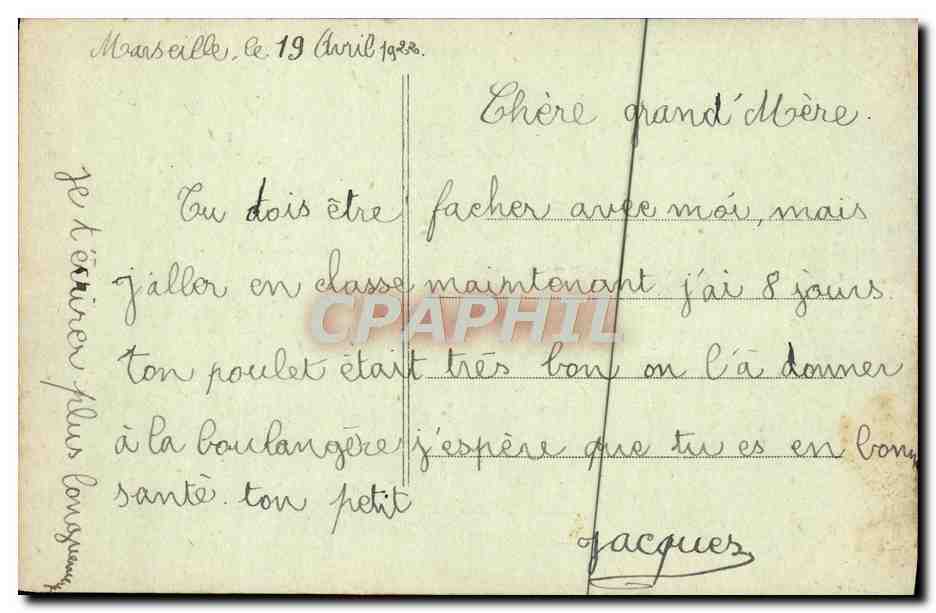 Marseille, le 19 Avril 1922.
Chère grand'Mère.
Tu dois être facher avec moi, mais
j'aller en classe maintenant j'ai 8 jours.
ton poulet était très bon on l'à donner
à la boulangère j'espère que tu es en bonne
santé. ton petit
Jacques
je t'écrirer plus longuement
CPAPHIL